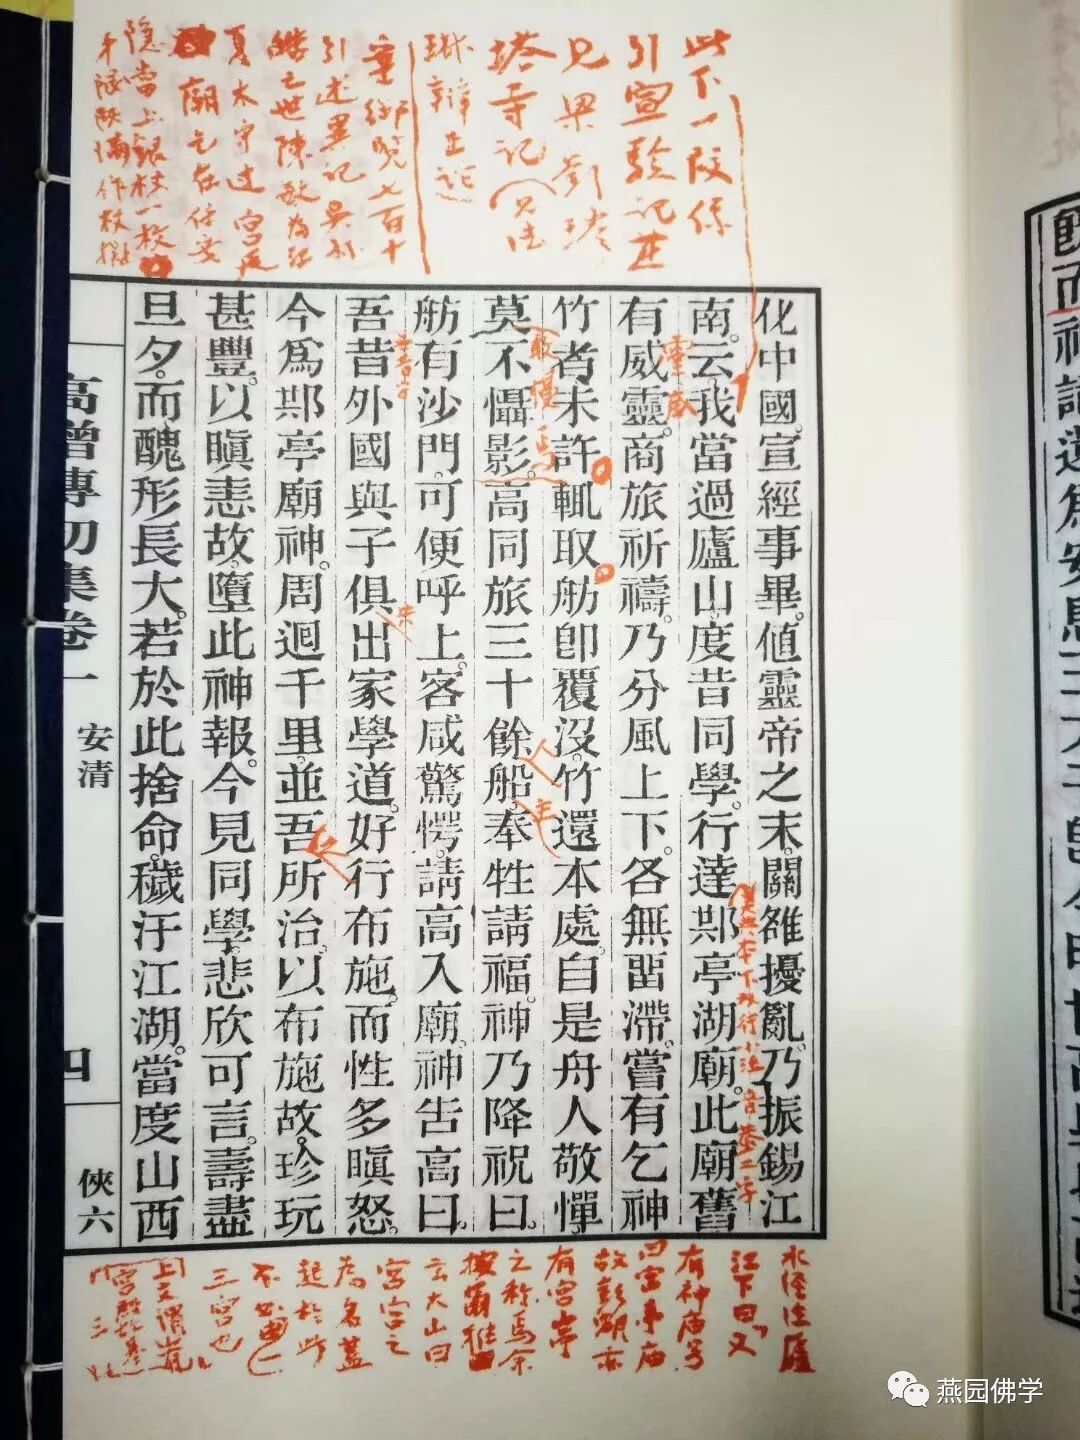 此下一段係
引宣驗記並
見梁劉璆
塔寺記(見法
琳辯正論
御覽七百十
引述異記吳
陳敏為江
夏太守過宮
廟乞在任安
隱當上銀杖一枚
化中國宣經事畢值靈帝之末關雒擾亂乃振錫江
南云我當過廬山度昔同學行達䢼亭湖廟此廟舊
有威靈商旅祈禱乃分風上下各無畱滯嘗有乞神
竹者未許輒取舫卽覆沒竹還本處自是舟人敬憚
莫不懾影高同旅三十餘船奉牲請福神乃降祝曰
舫有沙門可便呼上客咸驚愕請高入廟神告高曰
吾昔外國與子俱出家學道好行布施而性多瞋怒
今爲䢼亭廟神周迴千里並吾所治以布施故珍玩
甚豐以瞋恚故墮此神報今見同學悲欣可言壽盡
旦夕而醜形長大若於此捨命穢汙江湖當度山西
高僧傳初集卷一
安清
四
俠六
水經注廬
江下曰又
有神廟号
曰宮亭廟
故彭湖亦
有宮亭
之稱焉余
按爾雅
云大山曰
宮宮之
為名蓋
起於此
不必由
三宮也
燕园佛学